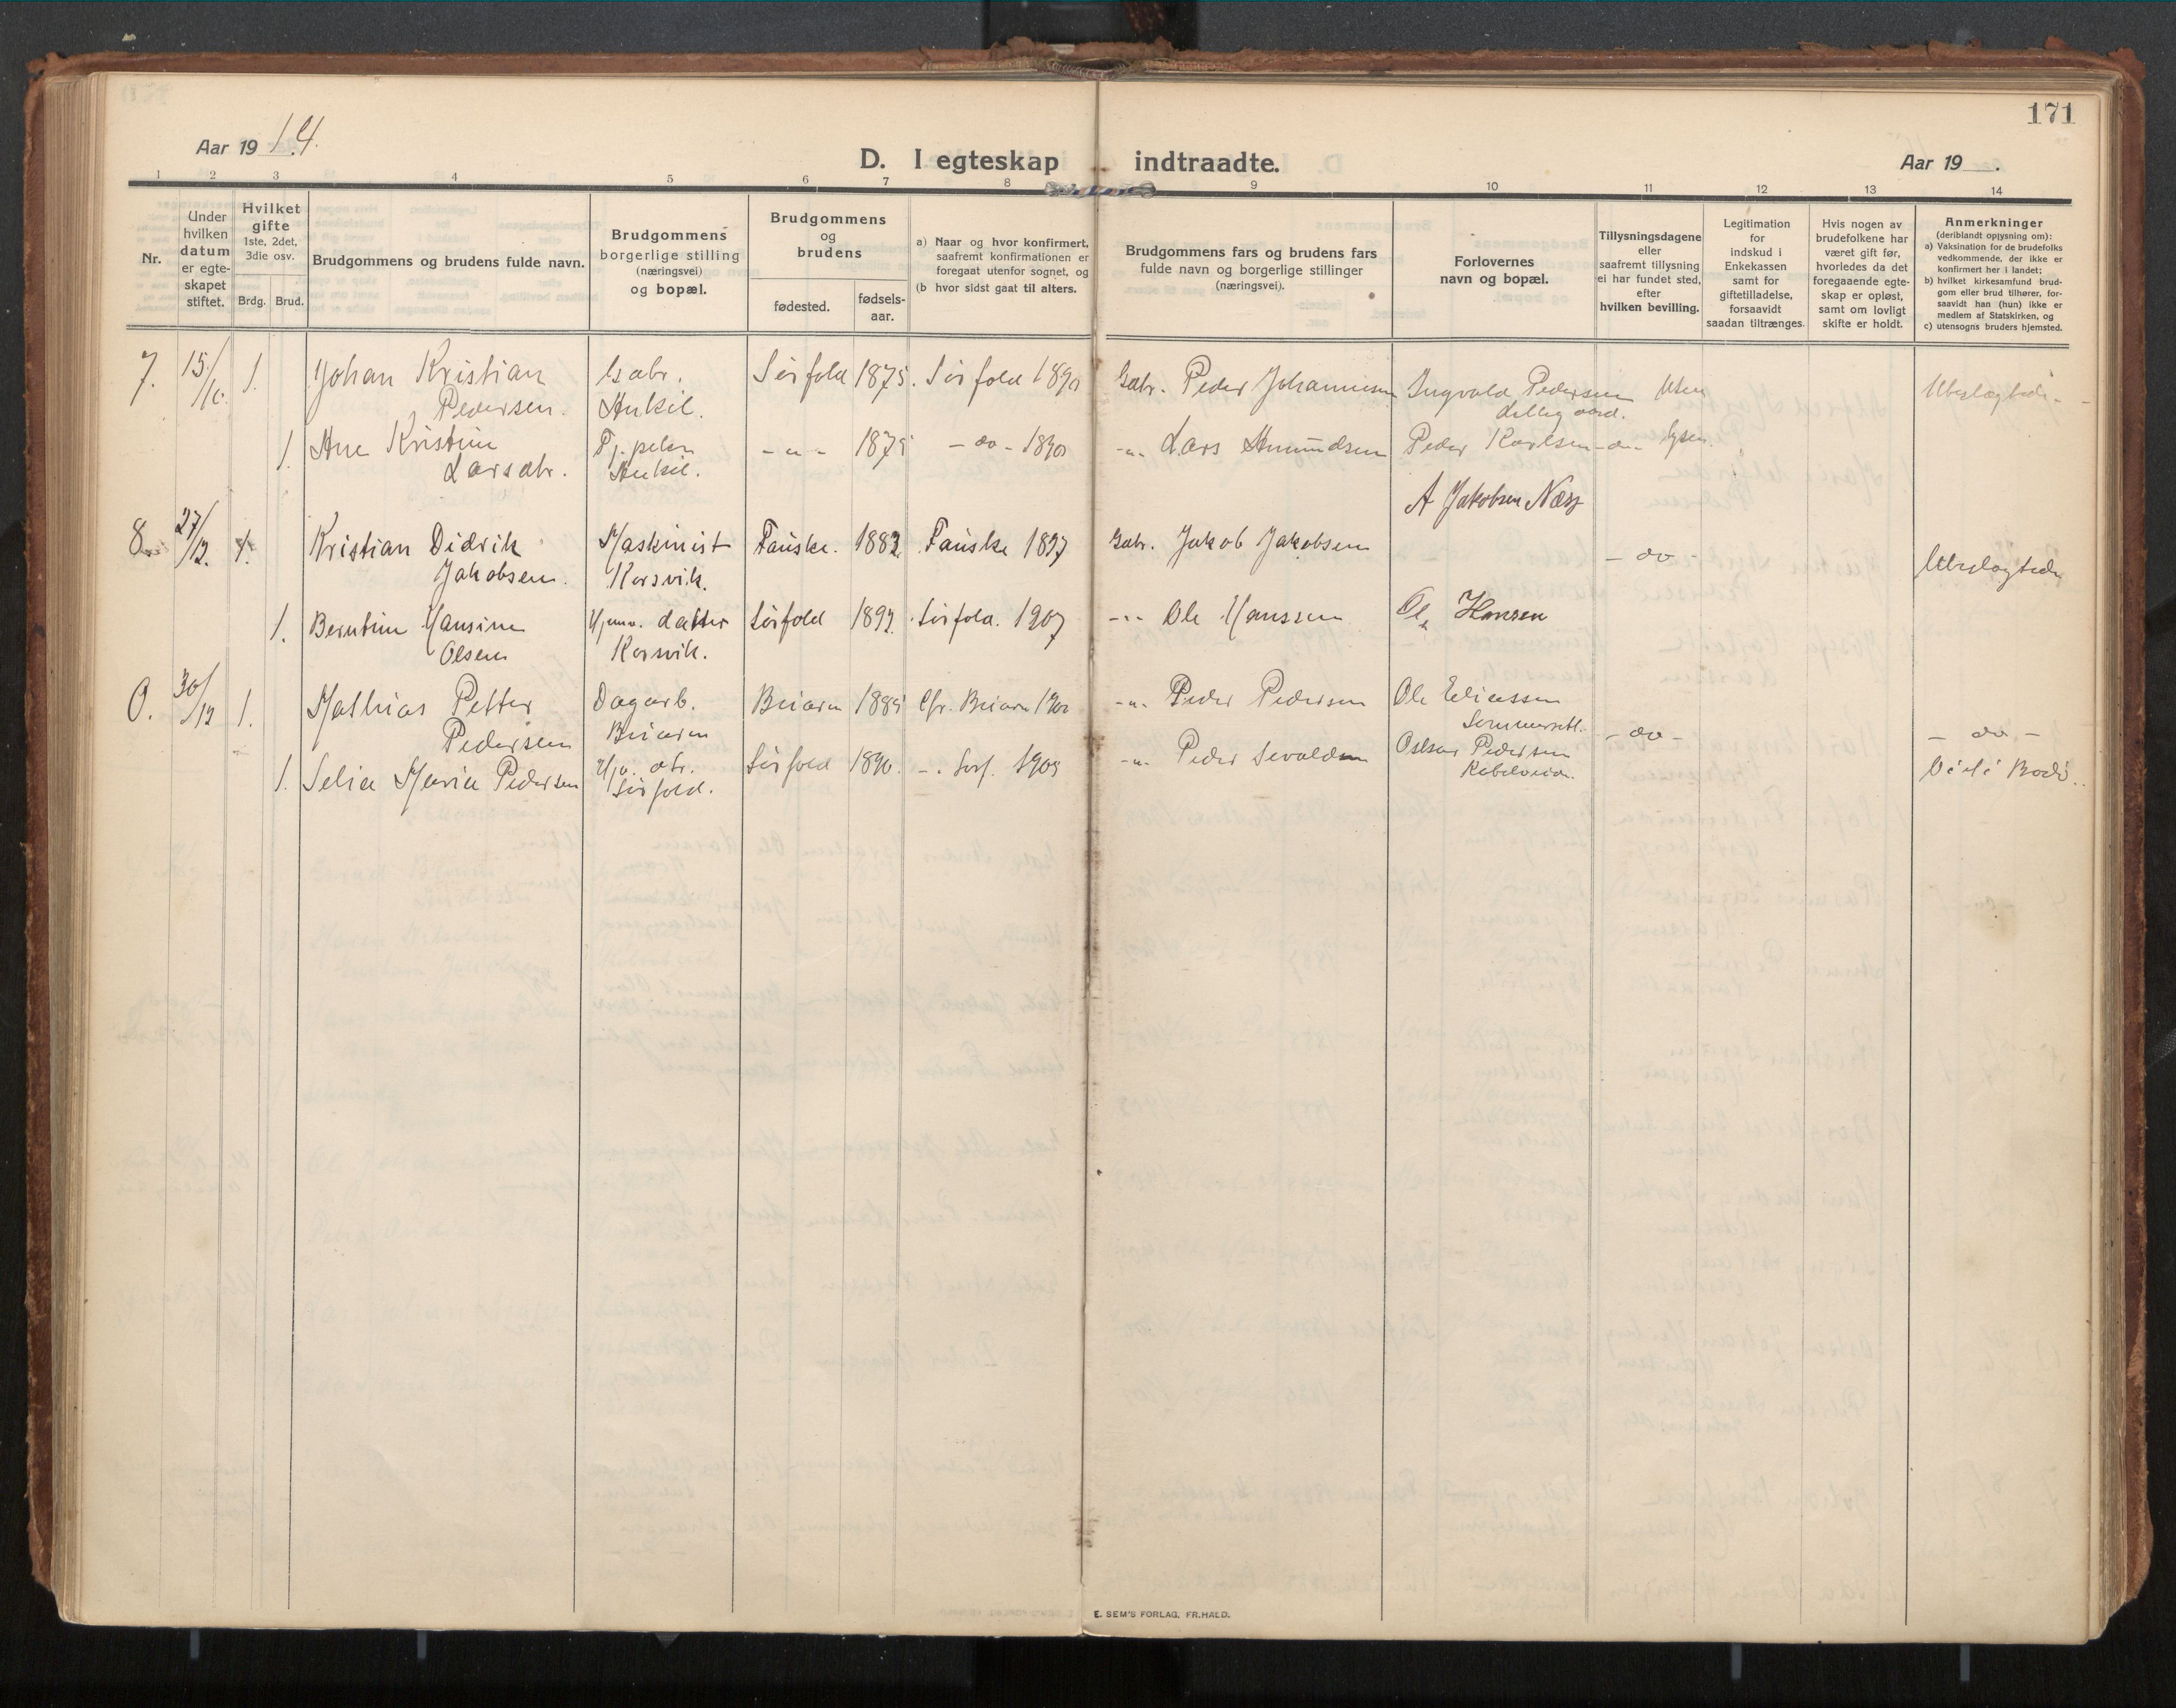 171
Aar 19 14.
D. I egteskap indtraadte.
Aar 19 .
1 2 3 4 5 6 7 8 9 10 11 12 13 14
Nr.
Under
hvilken
datum
er egte-
skapet
stiftet.
Hvilket
gifte
1ste, 2det,
3die osv.
Brdg. Brud.
Brudgommens og brudens fulde navn.
Brudgommens
borgerlige stilling
(næringsvei)
og bopæl.
Brudgommens
og
brudens
fødested.
fødsels-
aar.
a) Naar og hvor konfirmert,
saafremt konfirmationen er
foregaat utenfor sognet, og
(b hvor sidst gaat til alters.
Brudgommens fars og brudens fars
fulde navn og borgerlige stillinger
(næringsvei).
Forlovernes
navn og bopæl.
Tillysningsdagene
eller
saafremt tillysning
ei har fundet sted,
efter
hvilken bevilling.
Legitimation
for
indskud i
Enkekassen
samt for
giftetilladelse,
forsaavidt
saadan tiltrænges.
Hvis nogen av
brudefolkene har
været gift før,
hvorledes da det
foregaaende egte-
skap er opløst,
samt om lovligt
skifte er holdt.
Anmerkninger
(deriblandt opjysning om):
a) Vaksination for de brudefolks
vedkommende, der ikke er
konfirmert her i landet;
b) hvilket kirkesamfund brud-
gom eller brud tilhører, for-
saavidt han (hun) ikke er
medlem af Statskirken, og
c) utensogns bruders hjemsted.
7. 15/10. 1. Johan Kristian Gabr. Sørfold 1875. Sørfold 1890 Gabr. Peder Johannesen Ingvald Pedersen Uten Ubeslægtede
Pedersen.
1. Ane Kristine -"- 1875 -do- 1890 -"- Lars Amundsen Peder Karlsen -do- lysn.
Larsdtr.
A Jakobsen Næss
8. 27/12. 1. Kristian Didrik Maskinist Fauske. 1882. Fauske 1897 Gabr. Jakob Jakobsen -do- Ubeslægtede
Jakobsen. Korsvik.
1. Berntine Hansine datter Sørfold 1892. Sørfold. 1907 -"- Ole Hanssen Ole Hansen
Olsen Korsvik.
30/12 1. Mathias Petter Dagarb. Beiarn 1885 Beiarn 1900 -"- Peder Pedersen Ole
Pedersen Beiarn Sommerset. -do- -do-
1. Selia Maria Pedersen dtr. Sørfold 1890. 1905 -"- Peder Sevaldsen Oskar Pedersen Bodø.
Sørfold. Kobbelveid.
E. SEM'S FORLAG, FR.HALD.